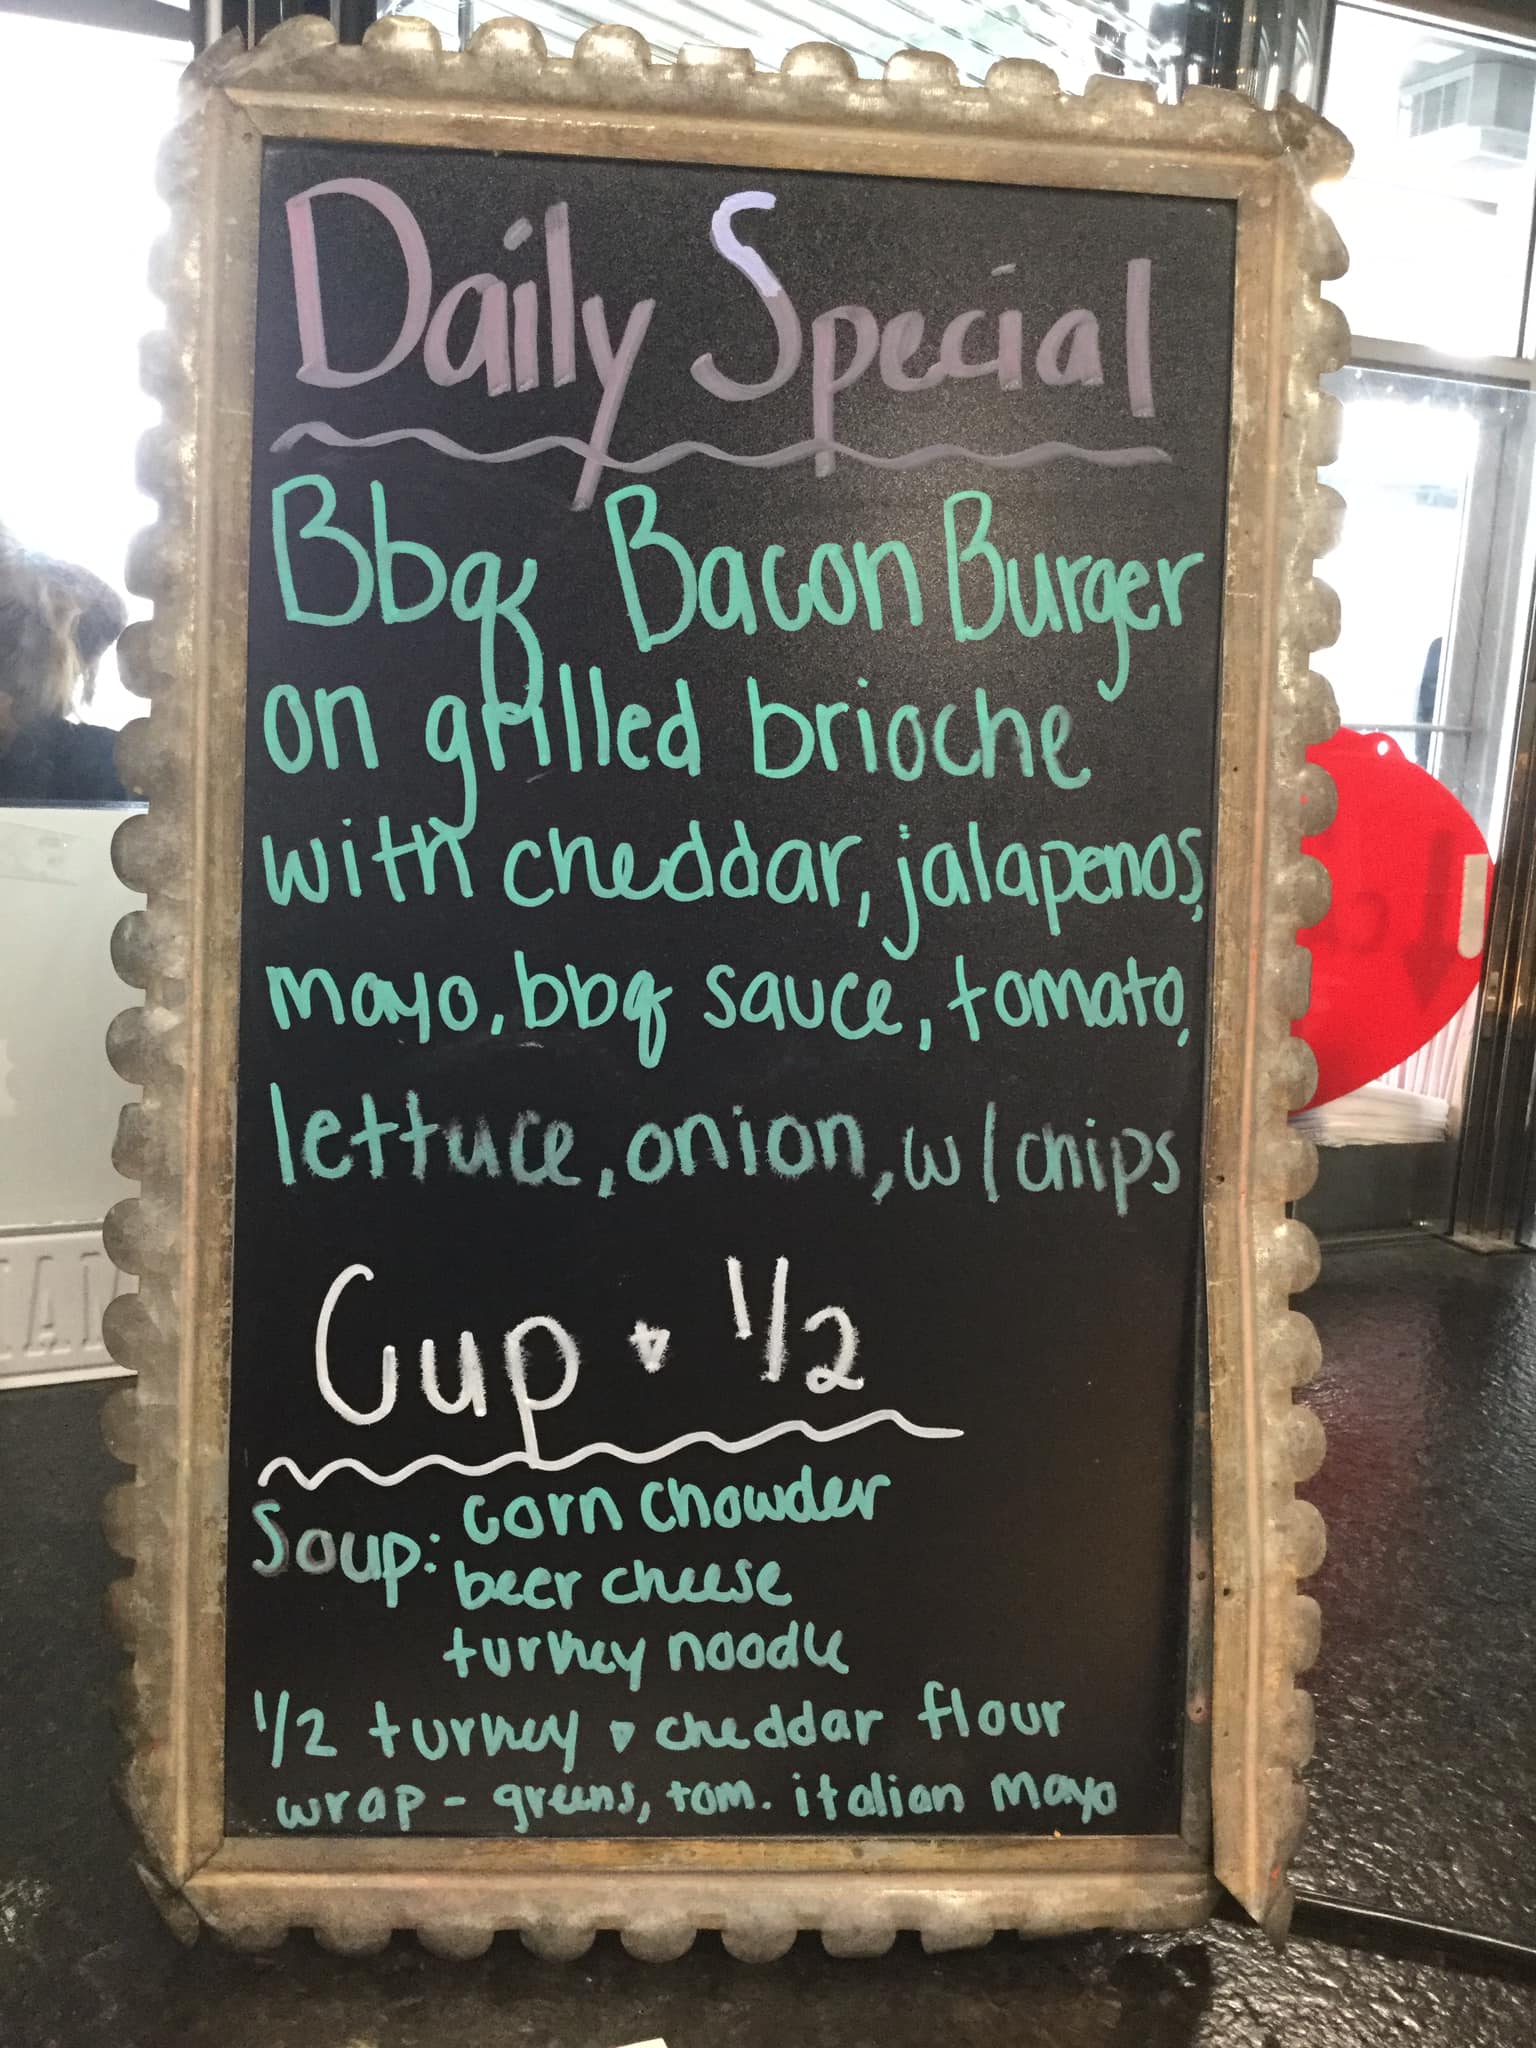 Daily Special
Bbq Bacon Burger
on grilled brioche
with cheddar, jalapenos,
mayo, bbq sauce, tomato,
lettuce, onion, w/chips
Cup + 1/2
Soup: corn chowder
beer cheese
turkey noodle
1/2 turkey + cheddar flour
wrap - greens, tom. italian mayo